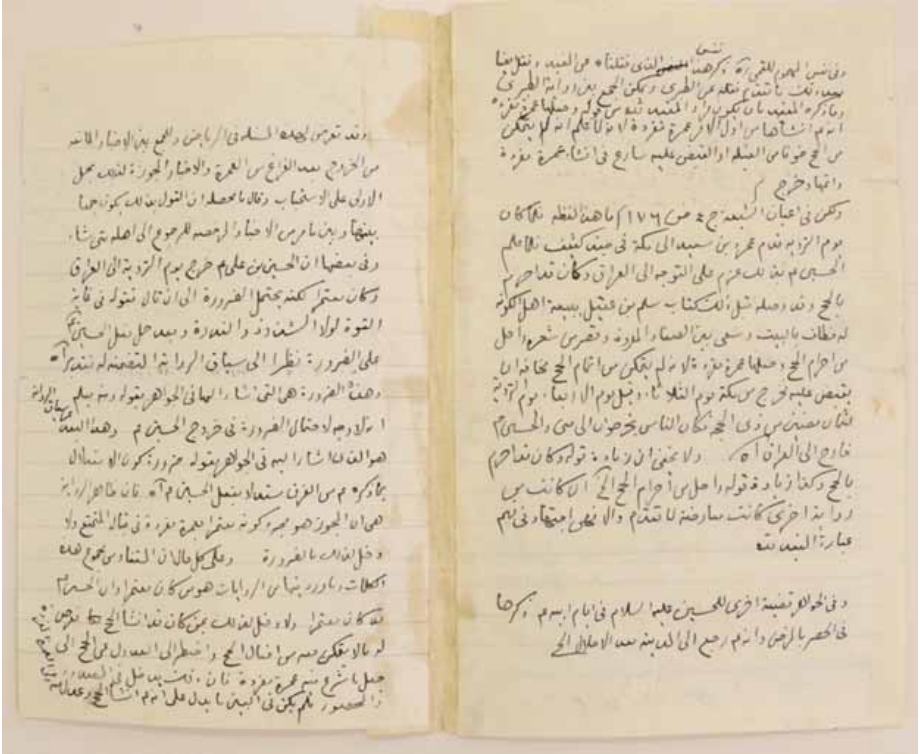 وفي نفس المهموم للقمي ره وذكر هذا الذي نقلناه عن المفيد ونقل هنا
نفس
بعد ذلك ما تقدم نقله عن الطبري ويمكن الجمع بين رواية الطبري
وما ذكره المفيد بان يكون مراد المفيد من قوله وجعلها عمرة مفردة
انه م انشأها من اول الامر عمرة مفردة لانه لما علم انه لا يتمكن
من الحج خوفا من القتل او القبض عليه سارع في انشاء عمرة مفردة
واتمها وخرج م
ولكن في اعيان الشيعة ج ٤ ص ١٧٦ ما هذا لفظه فلما كان
يوم التروية قدم عمرو بن سعيد الى مكة في جند كثيف فلما علم
الحسين م بذلك عزم على التوجه الى العراق وكان قد احرم
بالحج وقد وصله قبل ذلك كتاب مسلم بن عقيل ببيعة اهل الكوفة
له فطاف بالبيت وسعى بين الصفا والمروة وقصر من شعره واحل
من احرام الحج وجعلها عمرة مفردة لانه لم يتمكن من اتمام الحج مخافة ان
يقبض عليه فخرج من مكة يوم الثلاثاء وقيل يوم الاربعاء يوم التروية
لثمان مضين من ذي الحجة فكان الناس يخرجون الى منى والحسين م
خارج الى العراق اه ولا يخفى ان زيادة قوله وكان قد احرم
بالحج وكذا زيادة قوله واحل من احرام الحج الخ ان كانت من
رواية اخرى كانت معارضة لما تقدم والا فهي اجتهاد في فهم
عبارة المفيد
وفي الجواهر قضية اخرى للحسين عليه السلام في ايام ابيه م وذكرها
في الحصر بالمرض وانه م رجع الى المدينة بعد الاحلال الخ
وقد تعرض لهذه المسألة في الرياض والجمع بين الاخبار المانعة
من الخروج بعد الفراغ من العمرة والاخبار المجوزة لذلك بحمل
الاولى على الاستحباب وقال ما محصله ان القول بذلك يكون جمعا
بينها وبين ما مر من الاخبار المرخصة للرجوع الى اهله متى شاء
وفي بعضها ان الحسين بن علي م خرج يوم التروية الى العراق
وكان معتمرا لكنه يحتمل الضرورة الى ان قال فقوله في غاية
القوة لولا الشذوذ والندرة وبعد حمل فعل الحسين م
على الضرورة نظرا الى سياق الرواية المتضمنة له فتدبر اه
وهذه الضرورة هي التي اشار اليها في الجواهر بقوله ومنه يعلم
انه لا وجه لاحتمال الضرورة في خروج الحسين م وهذا البعد
عن سياق الرواية
هو الذي اشار اليه في الجواهر بقوله ضرورة كون الاستدلال
بما ذكره م من الفرق مستفاد بفعل الحسين م اه فان ظاهر الرواية
هي ان المجوز هو مجرد كونه معتمرا بعمرة مفردة في قبال المتمتع ولا
دخل لذلك بالضرورة وعلى كل حال ان المستفاد من مجموع هذه
الكلمات وما ورد فيها من الروايات هو من كان معتمرا وان الحسين م
قد كان معتمرا ولا دخل لذلك بمن كان قد انشأ الحج ثم عرض
له ما لا يتمكن معه من افعال الحج واضطر الى العدول من الحج الى
جعل ما شرع فيه عمرة مفردة فان ذلك يدخل في المصدود
والمحصور فلم يكن في البين ما يدل على انه م انشأ الحج وعدل منه